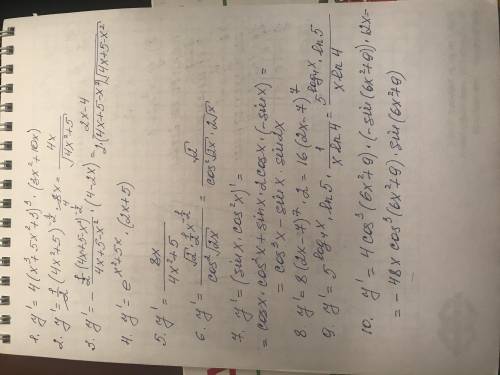 1. y' = 4(x³+5x²+3)³ · (3x²+10x)
2. y' = 1/2 (4x²+5)^(-1/2) · 8x = 4x/√(4x²+5)
3. y' = - (1/2 (4x+5-x²)^(-1/2))/(4x+5-x²) · (4-2x) = (2x-4)/(2·(4x+5-x²)√(4x+5-x²))
4. y' = e^(x²+5x) · (2x+5)
5. y' = 8x/(4x²+5)
6. y' = (√2 · 1/2 x^(-1/2))/(cos²√2x) = √2/(cos²√2x · 2√x)
7. y' = (sinx · cos²x)' =
= cosx · cos²x + sinx · 2cosx · (-sinx) =
= cos³x - sinx · sin2x
8 y' = 8(2x-7)⁷ · 2 = 16(2x-7)⁷
9. y' = 5^(log₄x) · ln5 · 1/(x ln4) = (5^(log₄x) · ln5)/(x ln4)
10. y' = 4cos³(6x²+9) · (-sin(6x²+9)) · 12x =
= -48x cos³(6x²+9) · sin(6x²+9)